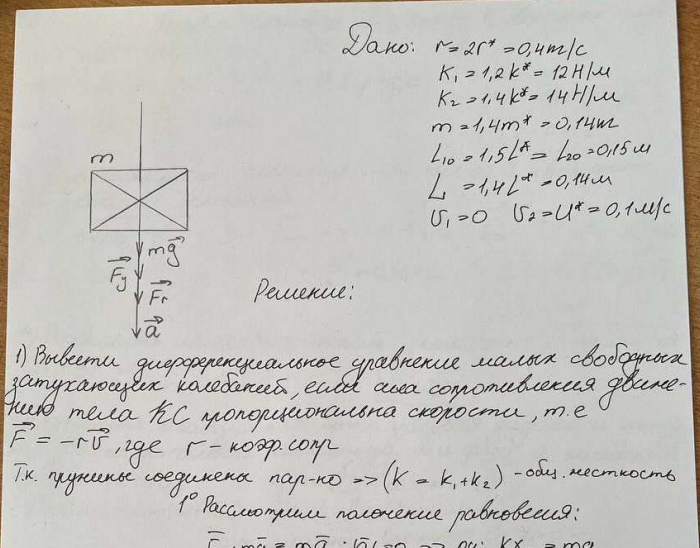 Дано: r = 2r* = 0,4 т/с
K₁ = 1,2k* = 12 Н/м
K₂ = 1,4k* = 14 Н/м
m = 1,4m* = 0,14 т
L₁₀ = 1,5L* = L₂₀ = 0,15 м
L = 1,4L* = 0,14 м
U₁ = 0 U₂ = U* = 0,1 м/с
m
mg⃗
F⃗y
F⃗r
a⃗
Решение:
1) Вывести дифференциальное уравнение малых свободных
затухающих колебаний, если сила сопротивления движе-
нию тела КС пропорциональна скорости, т.е
F⃗ = -rU⃗, где r - коэф. сопр
Т.к. пружины соединены пар-но => (K = k₁+k₂) - общ. жесткость
1⁰ Рассмотрим положение равновесия: